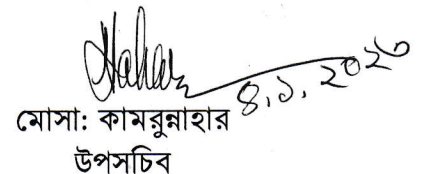 ৪.১.২০২৩
মোসা: কামরুন্নাহার
উপসচিব